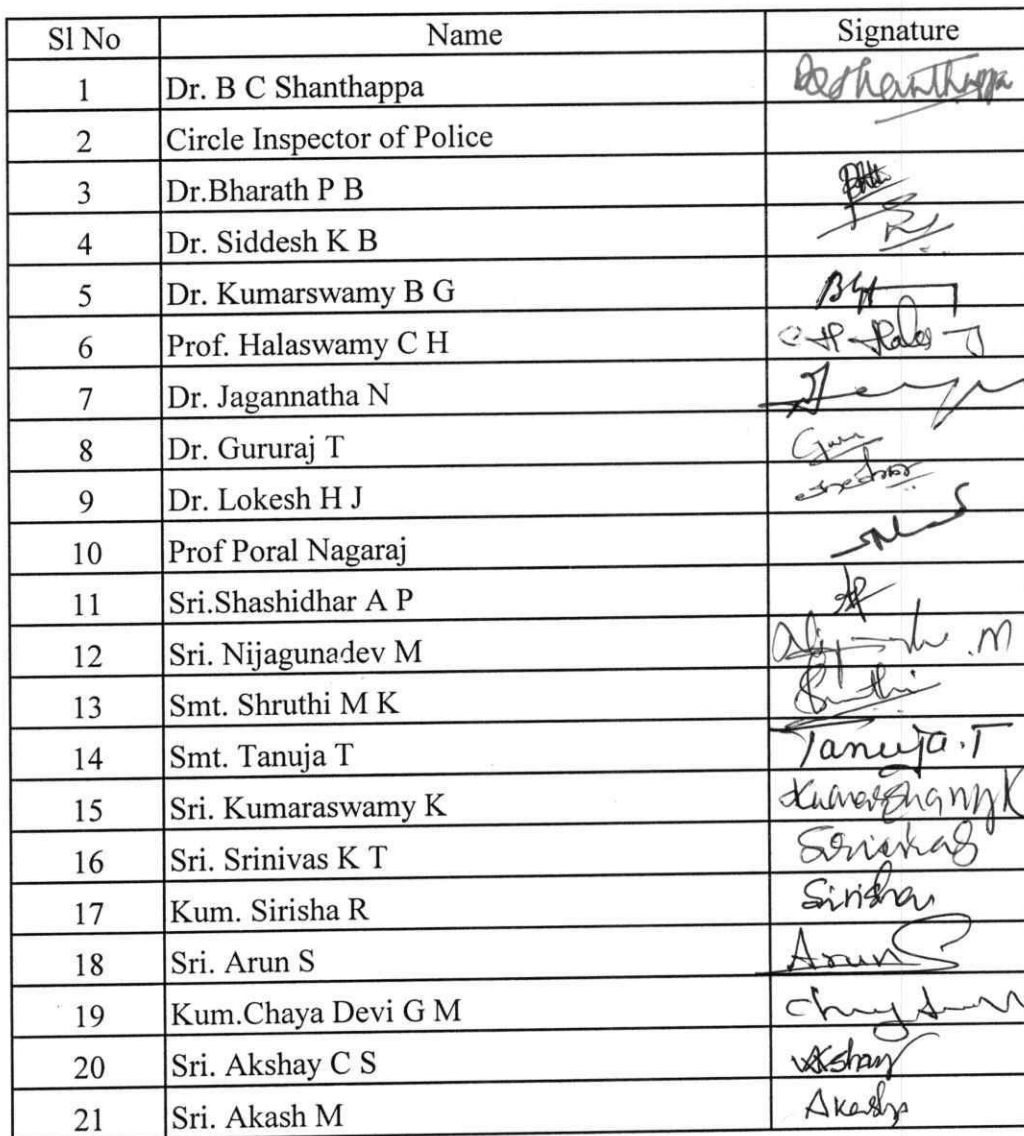 Sl No Name Signature
1 Dr. B C Shanthappa Bcshanthappa
2 Circle Inspector of Police
3 Dr.Bharath P B
4 Dr. Siddesh K B
5 Dr. Kumarswamy B G
6 Prof. Halaswamy C H
7 Dr. Jagannatha N
8 Dr. Gururaj T Guru
9 Dr. Lokesh H J
10 Prof Poral Nagaraj
11 Sri.Shashidhar A P
12 Sri. Nijagunadev M
13 Smt. Shruthi M K Shruthi
14 Smt. Tanuja T Tanuja.T
15 Sri. Kumaraswamy K
16 Sri. Srinivas K T Srinivas
17 Kum. Sirisha R Sirisha
18 Sri. Arun S Arun S
19 Kum.Chaya Devi G M
20 Sri. Akshay C S Akshay
21 Sri. Akash M Akash